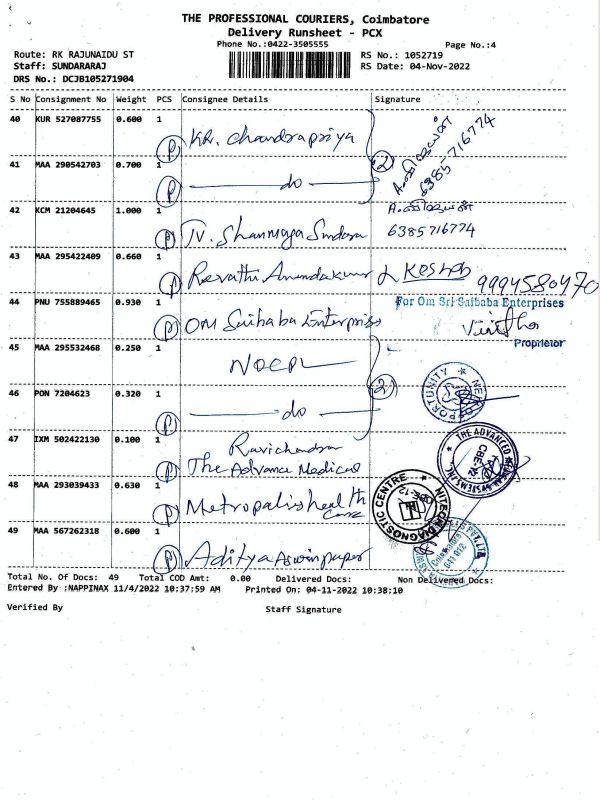 THE PROFESSIONAL COURIERS, Coimbatore
Delivery Runsheet - PCX
Phone No.:0422-3505555
Page No.:4
Route: RK RAJUNAIDU ST
RS No.: 1052719
Staff: SUNDARARAJ
RS Date: 04-Nov-2022
DRS No.: DCJB105271904
S No Consignment No Weight PCS Consignee Details Signature
40 KUR 527087755 0.600 1
P KR. Chandrapriya
6385716774
41 MAA 290542703 0.700 1
P do 2
42 KCM 21204645 1.000 1
P TV. Shanmuga Sundara 6385716774
43 MAA 295422409 0.660 1
P Revathi Anandakumar Keshab 9994580470
44 PNU 755889465 0.930 1
For Om Sri Saibaba Enterprises
P OM Saibaba Enterprises
Proprietor
45 MAA 295532468 0.250 1
NOCPL
46 PON 7204623 0.320 1 2
P do
OPPORTUNITY
47 IXM 502422130 0.100 1
Ravichandra
P The Advance Medical
THE ADVANCED
CBE-12
48 MAA 293039433 0.630 1
P Metropolis health
Care
DIAGNOSTIC CENTRE
CBE-12
49 MAA 567262318 0.600 1
P Aditya Aswin paper
PVT.LTD
Coimbatore
641 012
Total No. Of Docs: 49 Total COD Amt: 0.00 Delivered Docs: Non Delivered Docs:
Entered By :NAPPINAX 11/4/2022 10:37:59 AM Printed On: 04-11-2022 10:38:10
Verified By Staff Signature